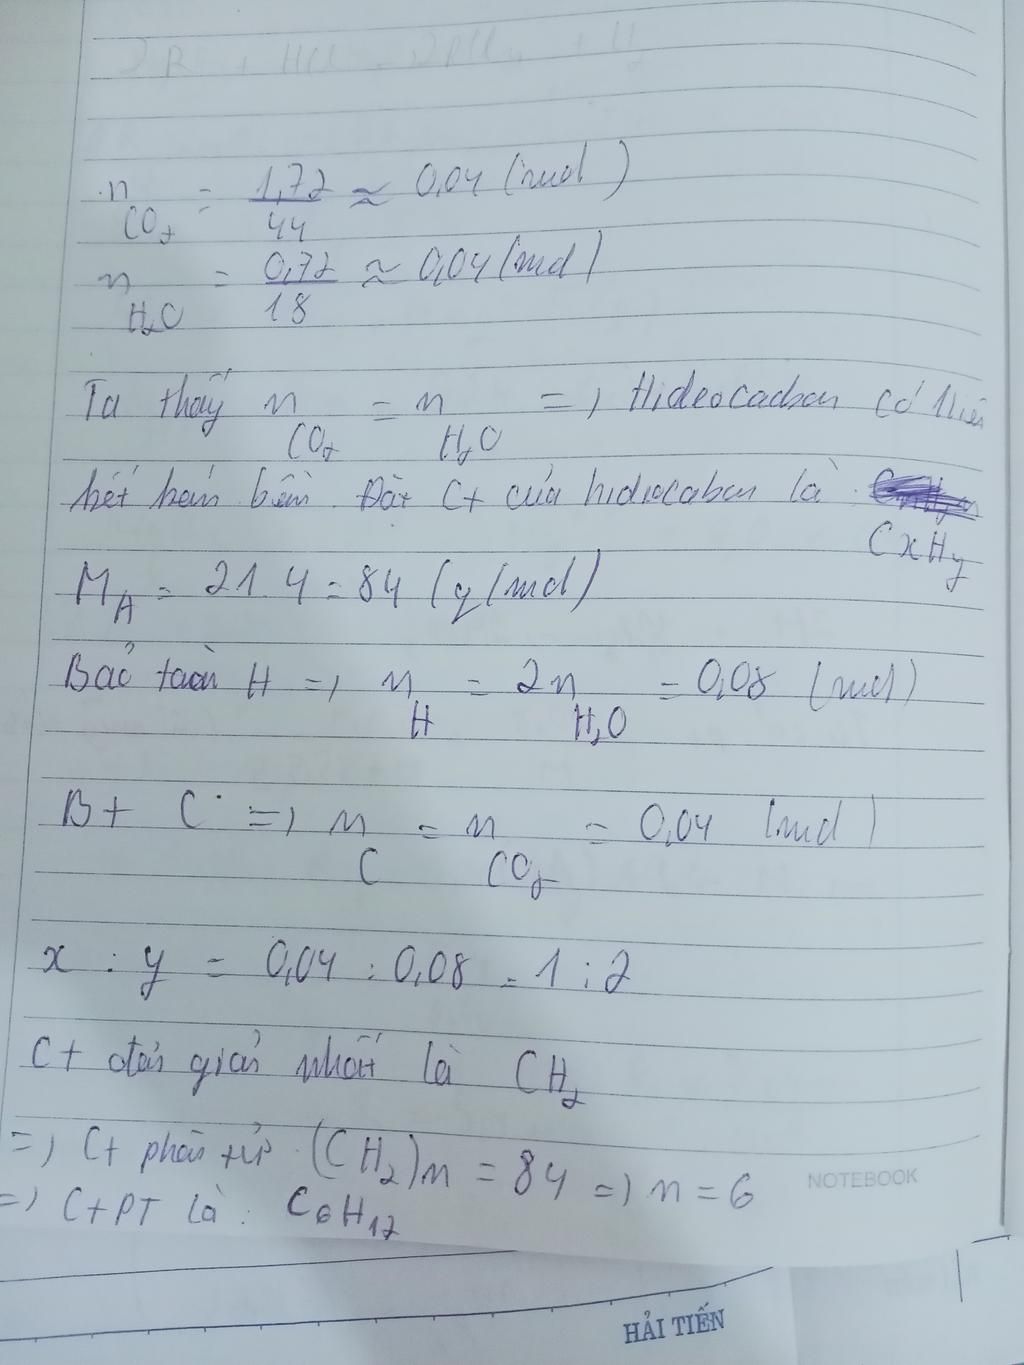 n CO2 = 1,72/44 ≈ 0,04 (mol)
n H2O = 0,72/18 ≈ 0,04 (mol)
Ta thấy n CO2 = n H2O => Hidrocacbon có liên
kết kém bền. Đặt Ct của hidrocacbon là
CxHy
MA = 21.4 = 84 (g/mol)
Bảo toàn H => n H = 2n H2O = 0,08 (mol)
B+ C => n C = n CO2 = 0,04 (mol)
x : y = 0,04 : 0,08 = 1 : 2
Ct đơn giản nhất là CH2
=> Ct phân tử (CH2)n = 84 => n = 6
=> CTPT là: C6H12
NOTEBOOK
HẢI TIẾN